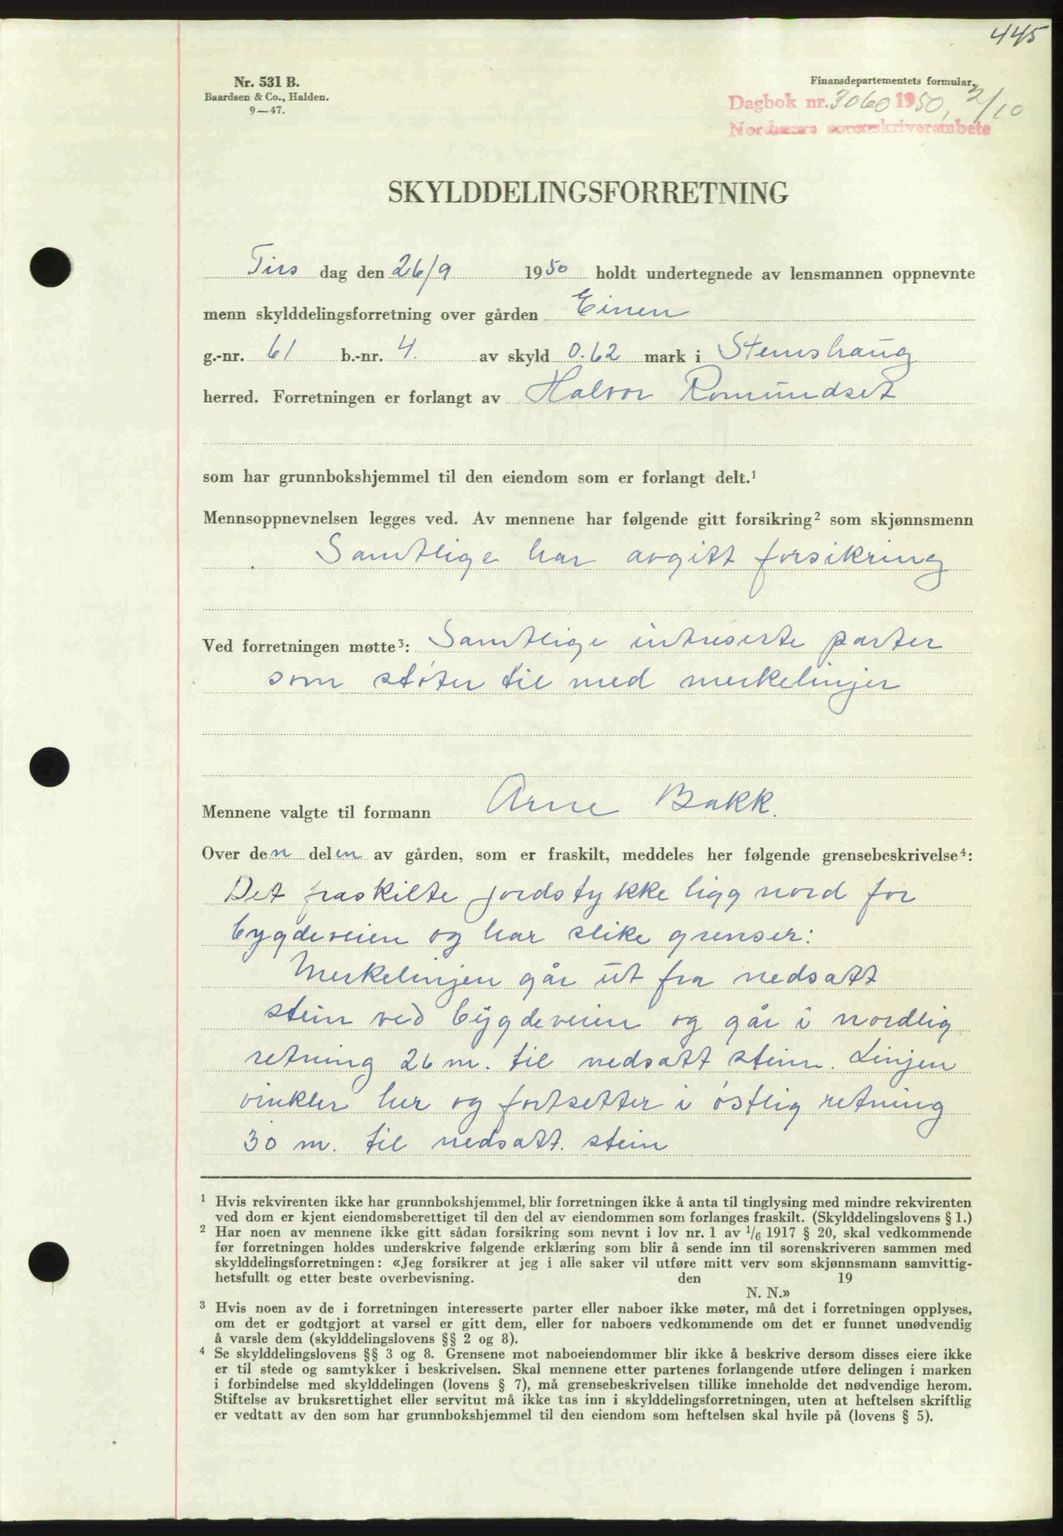 445
Nr. 531 B.
Baardsen & Co., Halden.
9—47.
Finansdepartementets formular.
Dagbok nr. 3060 1950, 2/10
Nordmøre sorenskriverembete
SKYLDDELINGSFORRETNING
Tirs dag den 26/9 1950 holdt undertegnede av lensmannen oppnevnte
menn skylddelingsforretning over gården Einen
g.-nr. 61 b.-nr. 4. av skyld 0.62 mark i Stemshaug
herred. Forretningen er forlangt av Halvor Romundset
som har grunnbokshjemmel til den eiendom som er forlangt delt.¹
Mennsoppnevnelsen legges ved. Av mennene har følgende gitt forsikring² som skjønnsmenn
Samtlige har avgitt forsikring
Ved forretningen møtte³: Samtlige intreserte parter
som støter til med merkelinjer
Mennene valgte til formann Arne Bakk.
Over den delen av gården, som er fraskilt, meddeles her følgende grensebeskrivelse⁴:
Det fraskilte jordstykke ligg nord for
bygdeveien og har slike grenser:
Merkelinjen går ut fra nedsatt
stein ved bygdeveien og går i nordlig
retning 26 m. til nedsatt stein. Linjen
vinkler her og fortsetter i østlig retning
30 m. til nedsatt. stein
¹ Hvis rekvirenten ikke har grunnbokshjemmel, blir forretningen ikke å anta til tinglysing med mindre rekvirenten
ved dom er kjent eiendomsberettiget til den del av eiendommen som forlanges fraskilt. (Skylddelingslovens § 1.)
² Har noen av mennene ikke gitt sådan forsikring som nevnt i lov nr. 1 av 1/6 1917 § 20, skal vedkommende
før forretningen holdes underskrive følgende erklæring som blir å sende inn til sorenskriveren sammen med
skylddelingsforretningen: «Jeg forsikrer at jeg i alle saker vil utføre mitt verv som skjønnsmann samvittig-
hetsfullt og etter beste overbevisning. den 19
N. N.»
³ Hvis noen av de i forretningen interesserte parter eller naboer ikke møter, må det i forretningen opplyses,
om det er godtgjort at varsel er gitt dem, eller for naboers vedkommende om det er funnet unødvendig
å varsle dem (skylddelingslovens §§ 2 og 8).
⁴ Se skylddelingslovens §§ 3 og 8. Grensene mot naboeiendommer blir ikke å beskrive dersom disses eiere ikke
er til stede og samtykker i beskrivelsen. Skal mennene etter partenes forlangende utføre delingen i marken
i forbindelse med skylddelingen (lovens § 7), må grensebeskrivelsen tillike inneholde det nødvendige herom.
Stiftelse av bruksrettighet eller servitut må ikke tas inn i skylddelingsforretningen, uten at heftelsen skriftlig
er vedtatt av den som har grunnbokshjemmel til den eiendom som heftelsen skal hvile på (lovens § 5).